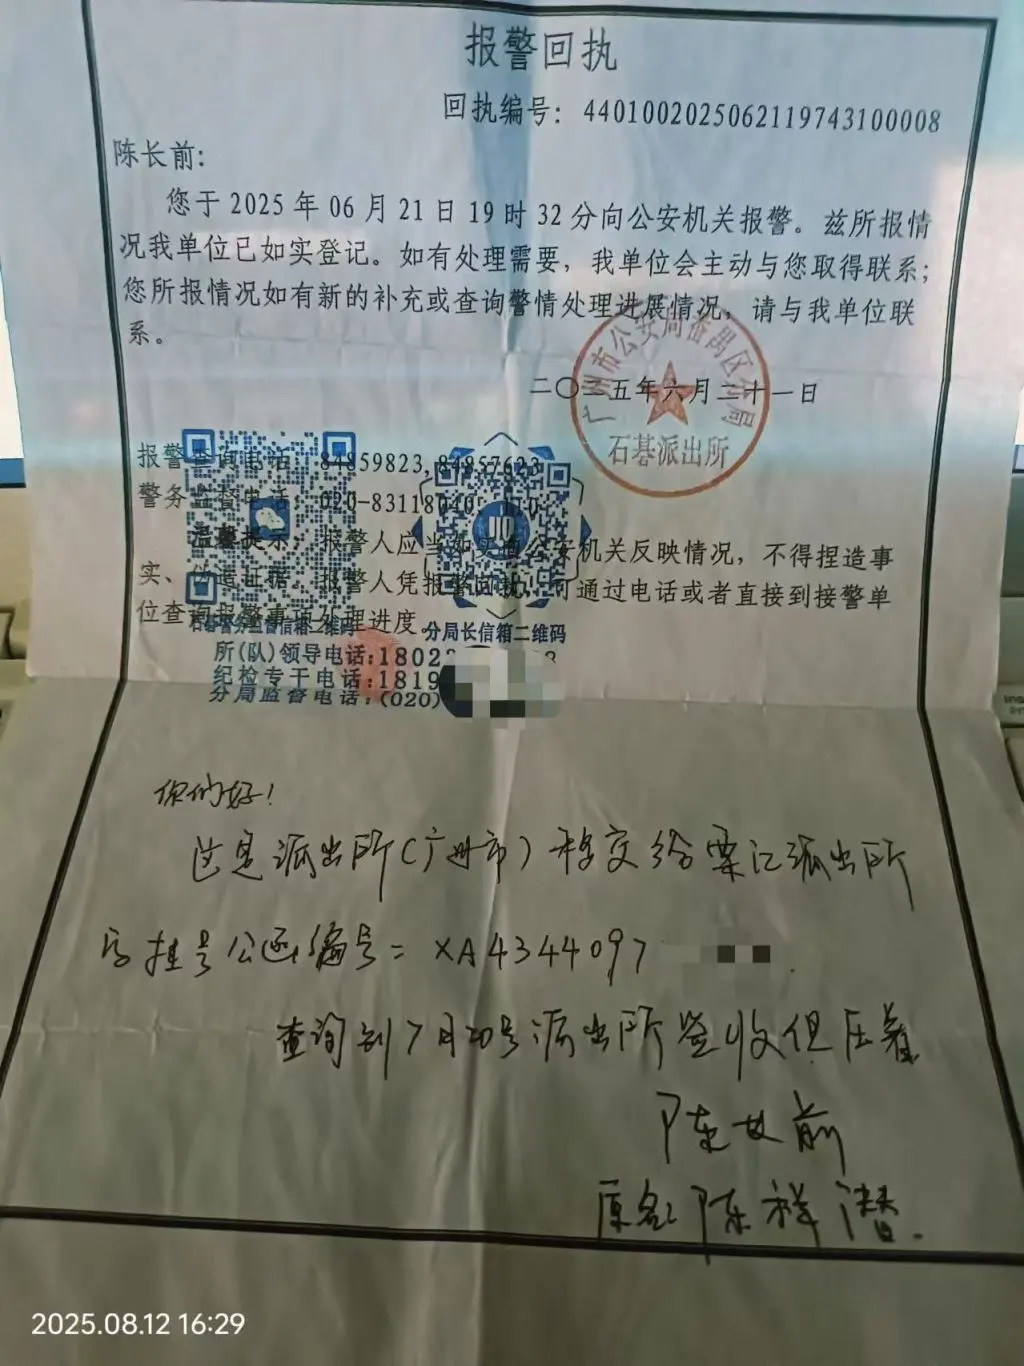 报警回执
回执编号：4401002025062119743100008
陈长前：
您于2025年06月21日19时32分向公安机关报警。兹所报情
况我单位已如实登记。如有处理需要，我单位会主动与您取得联系；
您所报情况如有新的补充或查询警情处理进展情况，请与我单位联
系。
二〇二五年六月二十一日
广州市公安局番禺区分局
石碁派出所
报警查询电话：84859823,84857623
警务监督电话：020-83118040、110
温馨提示：报警人应当如实向公安机关反映情况，不得捏造事
实、伪造证据。报警人凭报警回执，可通过电话或者直接到接警单
位查询报警事项处理进度。
石碁警务监督信箱二维码
分局长信箱二维码
所(队)领导电话:1802
纪检专干电话:1819
分局监督电话:(020)
你们好！
这是派出所(广州市)移交给栗江派出所
挂号公函编号=XA4344097
查询到7月20号派出所签收但压着
陈长前
原名陈祥潜.
2025.08.12 16:29